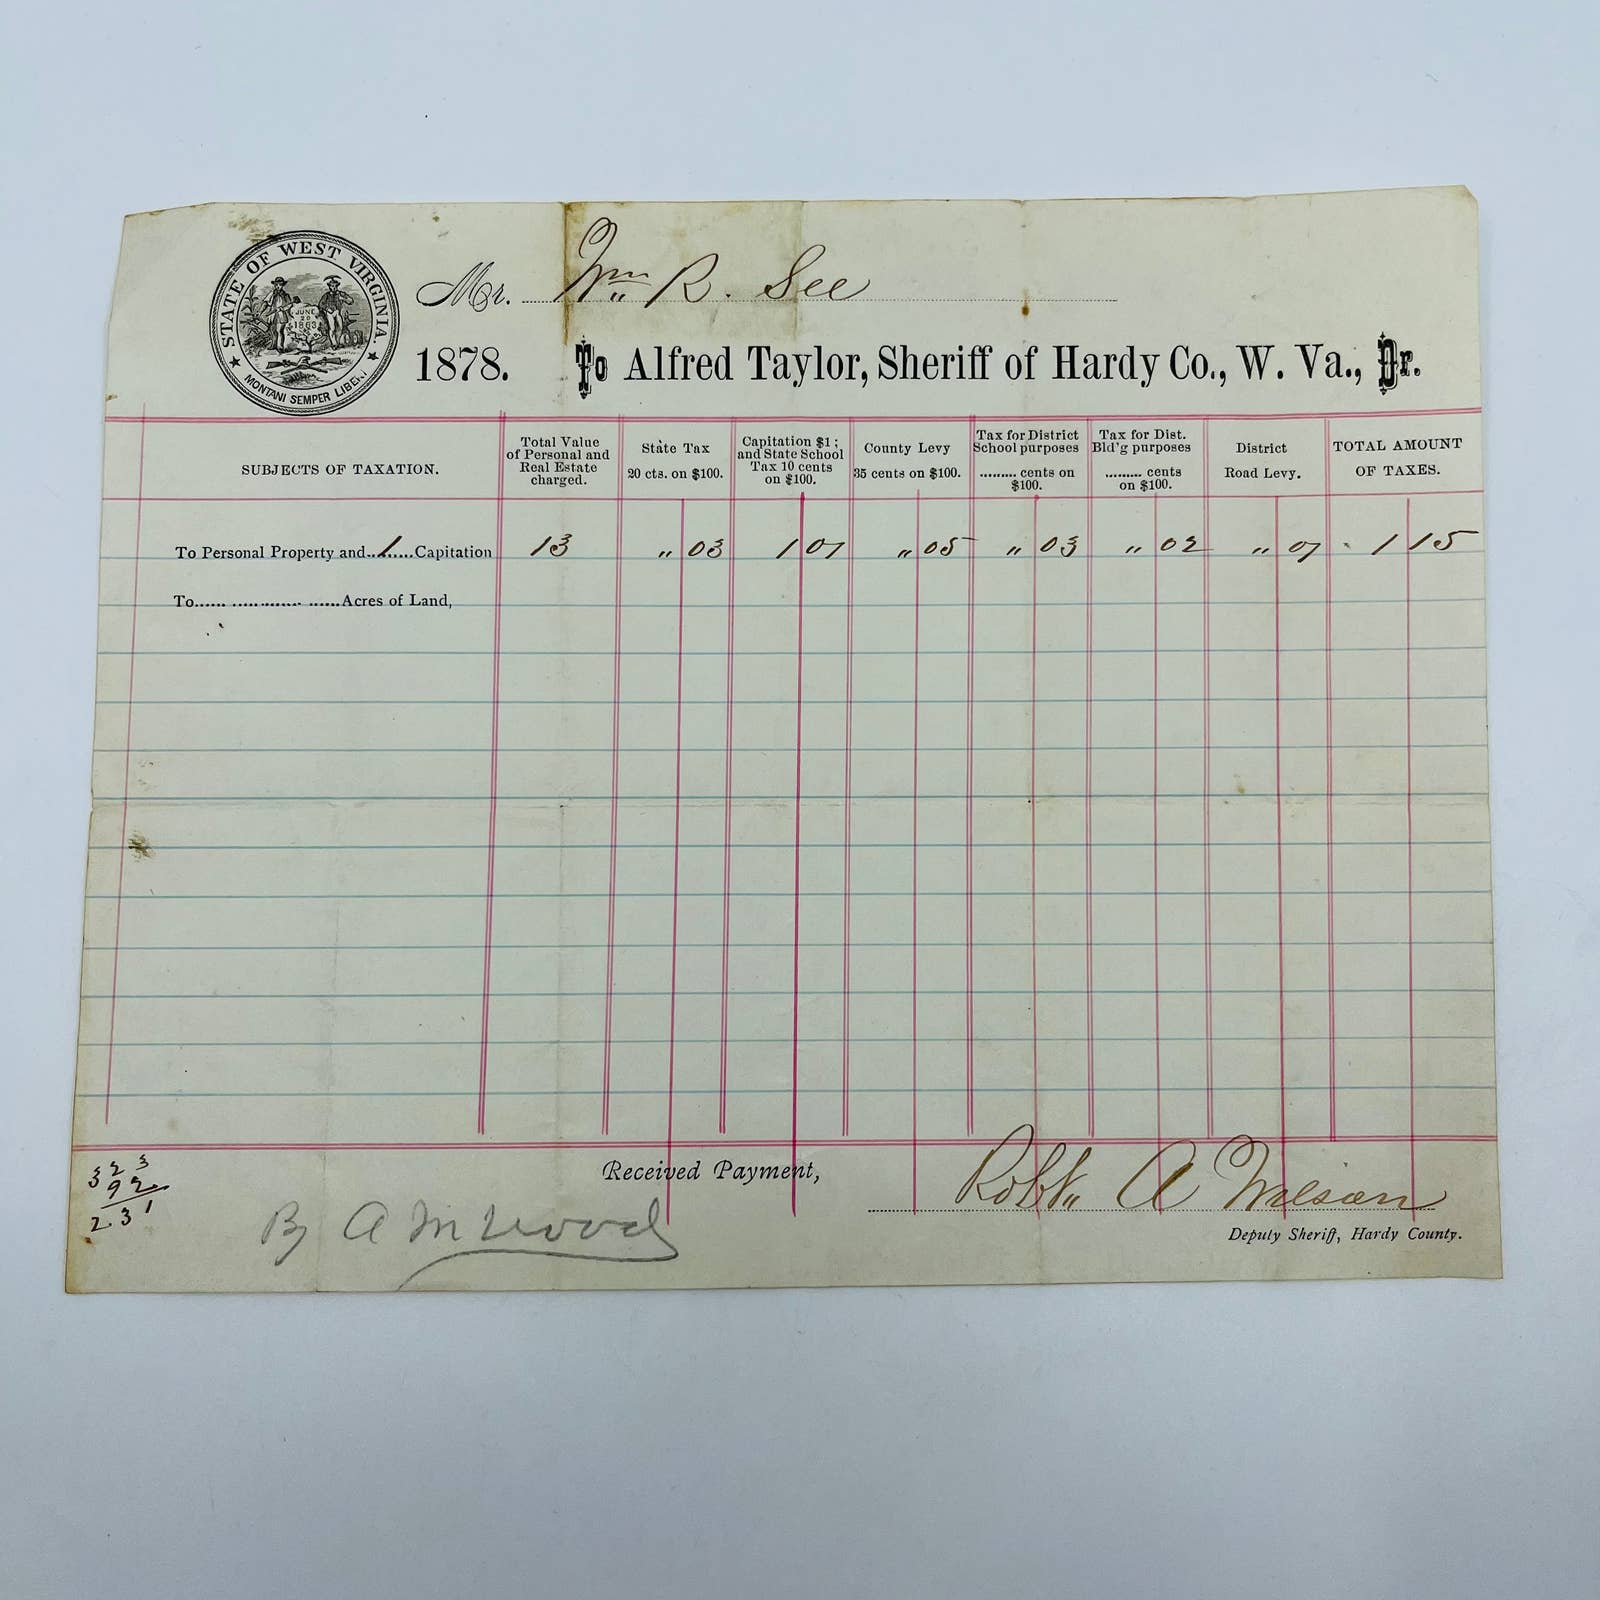 STATE OF WEST VIRGINIA.
JUNE
20
1863
MONTANI SEMPER LIBERI
Mr. Wm R. See
1878. To Alfred Taylor, Sheriff of Hardy Co., W. Va., Dr.
SUBJECTS OF TAXATION.
Total Value
of Personal and
Real Estate
charged.
State Tax
20 cts. on $100.
Capitation $1;
and State School
Tax 10 cents
on $100.
County Levy
35 cents on $100.
Tax for District
School purposes
......... cents on
$100.
Tax for Dist.
Bld'g purposes
......... cents
on $100.
District
Road Levy.
TOTAL AMOUNT
OF TAXES.
To Personal Property and..1.....Capitation 13 " 03 1 01 " 05 " 03 " 02 " 01 1 15
To...... .............. ......Acres of Land,
Received Payment,
Robt. A Wilson
Deputy Sheriff, Hardy County.
3 2 3
9 2
2 3 1
By A M Wood